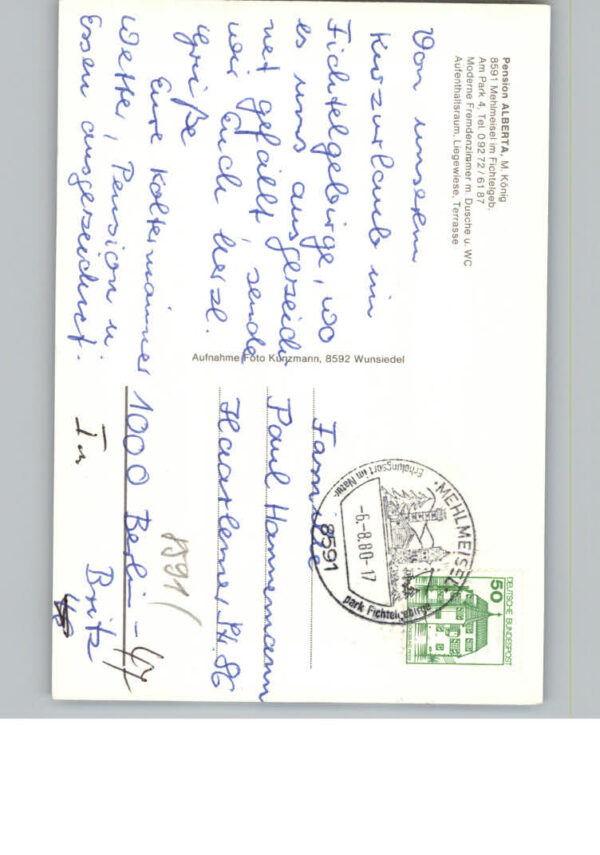 Pension ALBERTA, M. König
8591 Mehlmeisel im Fichtelgeb.
Am Park 4, Tel. 0 92 72 / 61 87
Moderne Fremdenzimmer m. Dusche u. WC
Aufenthaltsraum, Liegewiese, Terrasse
Von unserem
Kurzurlaub im
Fichtelgebirge, wo
es uns ausgezeich
net gefällt, senden
wir Euch herzl.
Grüße
Eure Koltermänner
Wetter, Pension u
Essen ausgezeichnet.
Aufnahme Foto Kunzmann, 8592 Wunsiedel
DEUTSCHE BUNDESPOST
50
·MEHLMEISEL·
8591
-6.-8.80-17
Erholungsort im Natur-
park Fichtelgebirge
Familie
Paul Hannemann
Haarlemer Str. 86
1000 Berlin - 47
8591/
Britz